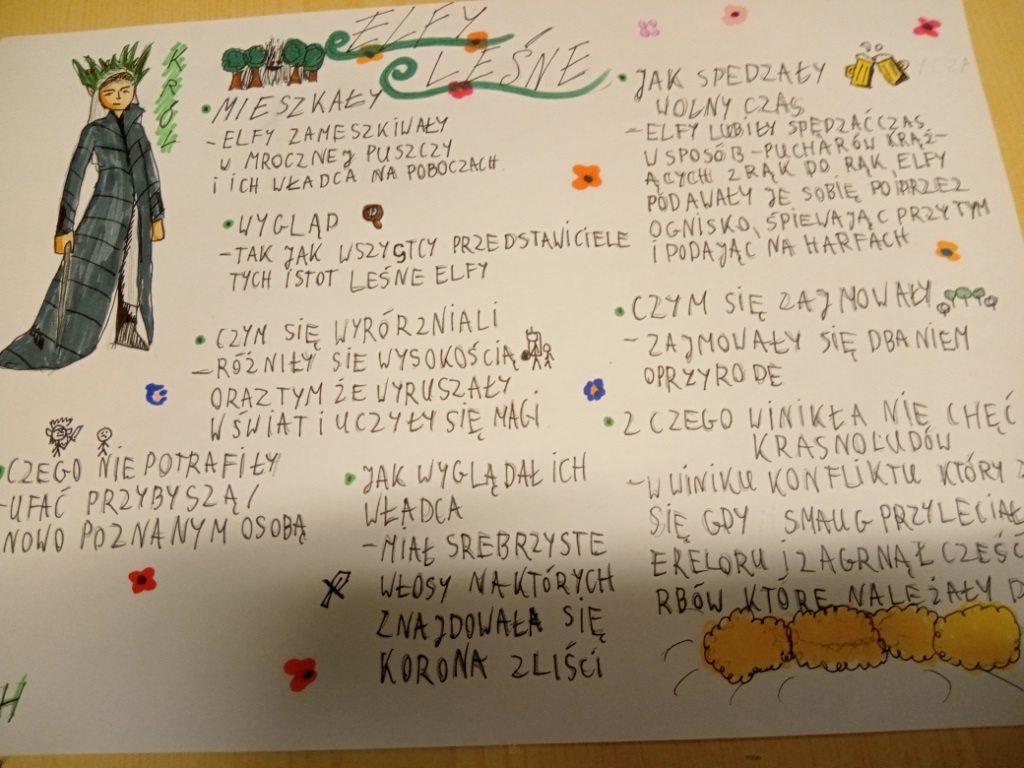 ELFY
LEŚNE
KRÓL
• MIESZKAŁY
- ELFY ZAMESZKIWAŁY
W MROCZNEJ PUSZCZY
I ICH WŁADCA NA POBOCZACH.
• WYGLĄD
- TAK JAK WSZYSTCY PRZEDSTAWICIELE
TYCH ISTOT LEŚNE ELFY
• CZYM SIĘ WYRÓRZNIALI
- RÓŻNIŁY SIE WYSOKOŚCIĄ
ORAZ TYM ŻE WYRUSZAŁY
W ŚWIAT I UCZYŁY SIĘ MAGI
• CZEGO NIE POTRAFIŁY
- UFAĆ PRZYBYSZĄ /
NOWO POZNANYM OSOBĄ
• JAK WYGLĄDAŁ ICH
WŁĄDCA
- MIAŁ SREBRZYSTE
WŁOSY NA KTÓRYCH
ZNAJDOWAŁA SIĘ
KORONA Z LIŚCI
• JAK SPEDZAŁY
WOLNY CZAS
- ELFY LUBIŁY SPĘDZAĆ CZAS
W SPOSÓB - PUCHARÓW KRĄŻ-
ĄCYCH Z RĄK DO RĄK, ELFY
PODAWAŁY JE SOBIĘ POPRZEZ
OGNISKO, ŚPIEWAJĄC PRZY TYM
I PODAJĄC NA HARFACH
• CZYM SIĘ ZAJMOWAŁY
- ZAJMOWAŁY SIĘ DBANIEM
O PRZYRODE
• Z CZEGO WINIKŁA NIE CHĘĆ
KRASNOLUDÓW
- W WINIKU KONFLIKTU KTÓRY Z
SIĘ GDY SMAUG PRZYLECIAŁ
ERELORU I ZAGRNĄŁ CZEŚĆ
RBÓW KTÓRE NALEŻAŁY D
H